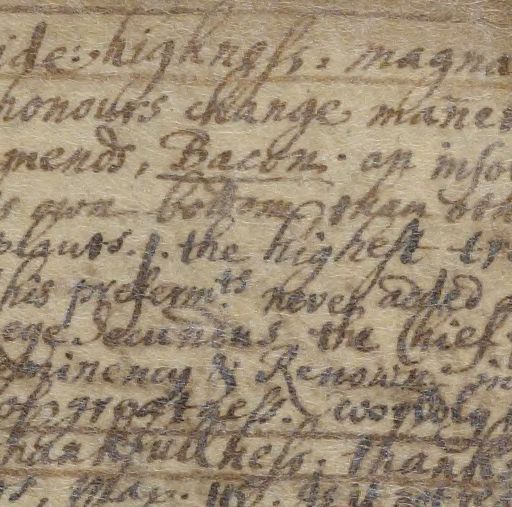 ide: highness. magna
honours change maner
mends, Bacon. an inso
s own bottom than oth
plauts. j. the highest tr
his preferm.ts never added
ege Secundus the Chief
minency & Renown. in
of greatness. worldly
thankfullness. Thank
us, May. 107.